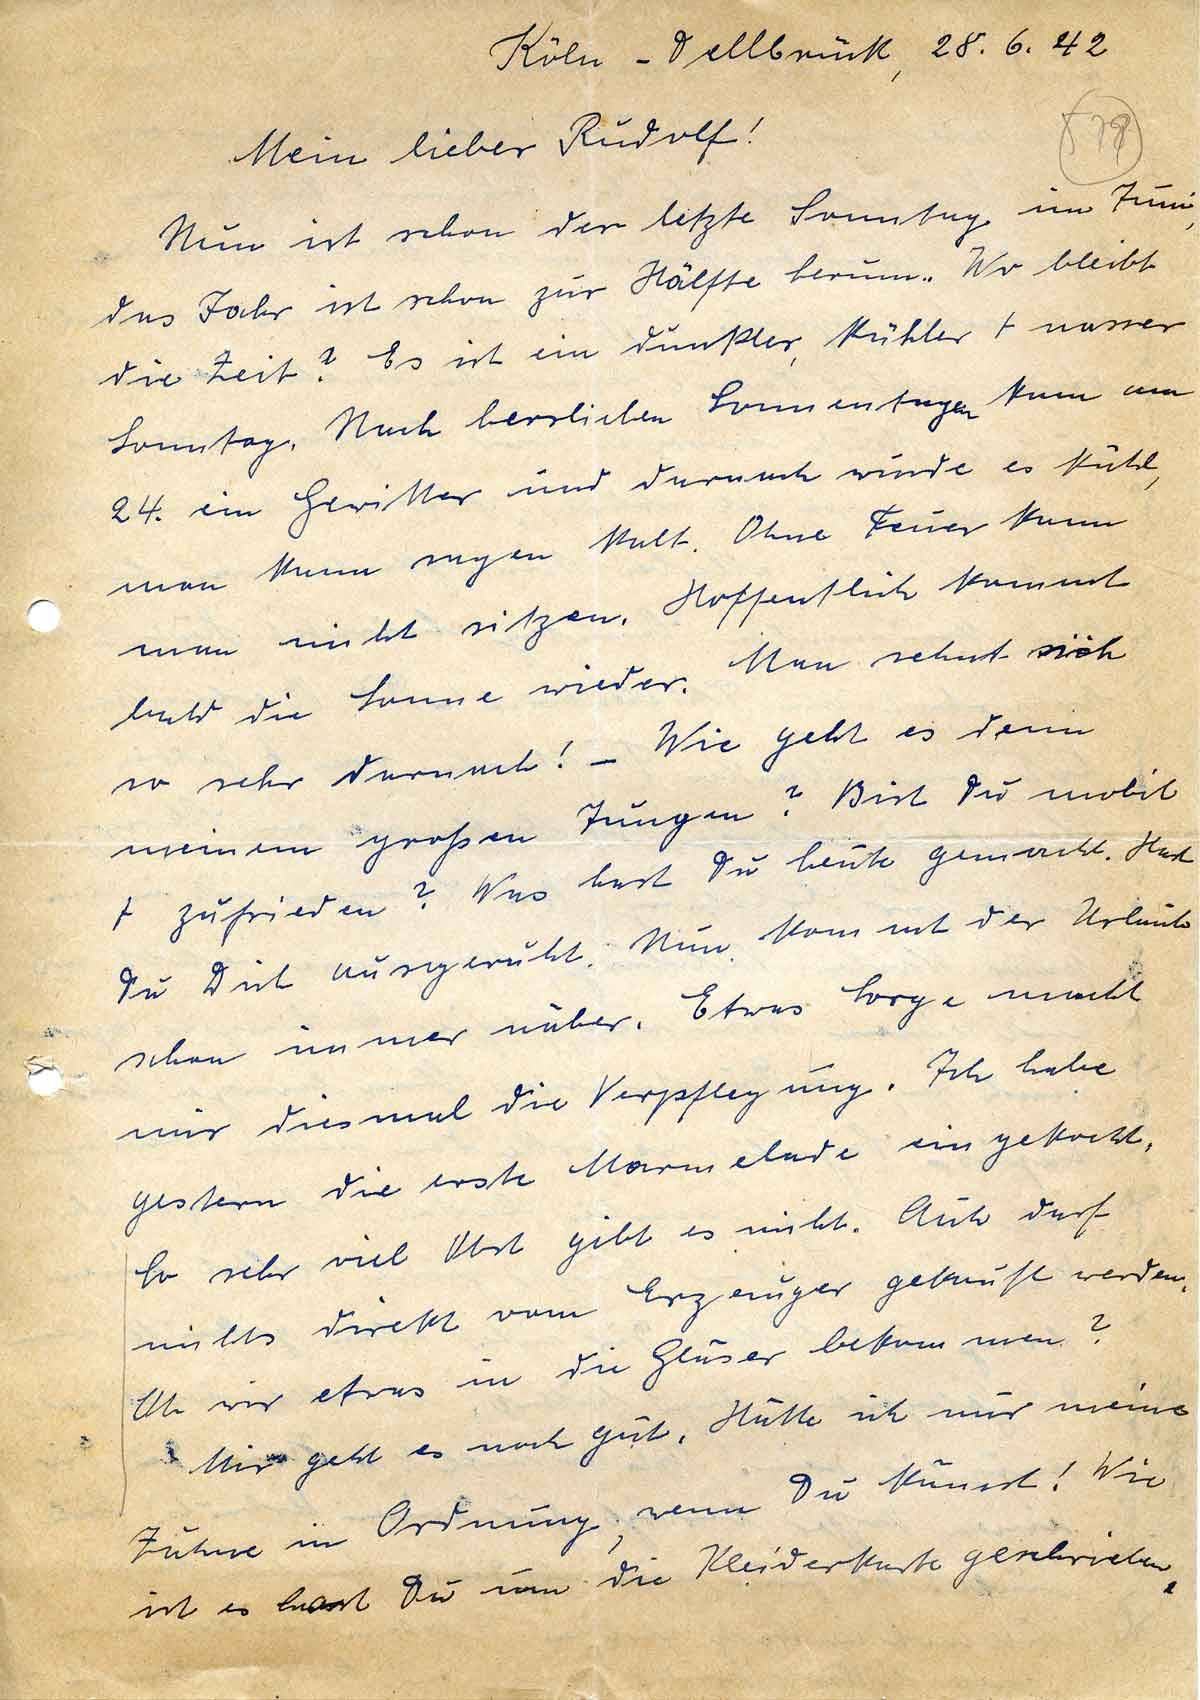 Köln - Dellbrück, 28. 6. 42
578
Mein lieber Rudolf!
Nun ist schon der letzte Sonntag im Juni,
das Jahr ist schon zur Hälfte herum.. Wo bleibt
die Zeit? Es ist ein dunkler, kühler + nasser
Sonntag. Nach herrlichen Sonnentagen kam am
24. ein Gewitter und darnach wurde es kühl,
man kann sagen kalt. Ohne Feuer kann
man nicht sitzen. Hoffentlich kommt
bald die Sonne wieder. Man sehnt sich
so sehr darnach! - Wie geht es denn
meinem großen Jungen? Bist Du mobil
+ zufrieden? Was hast Du heute gemacht. Hast
Du Dich ausgeruht. Nun kommt der Urlaub
schon immer näher. Etwas Sorge macht
mir diesmal die Verpflegung. Ich habe
gestern die erste Marmelade eingekocht.
So sehr viel Obst gibt es nicht. Auch darf
nichts direkt vom Erzeuger gekauft werden.
Ob wir etwas in die Gläser bekommen?
Mir geht es noch gut. Hätte ich nur meine
Zähne in Ordnung, wenn Du kämst! Wie
ist es hast Du um die Kleiderkarte geschrieben.